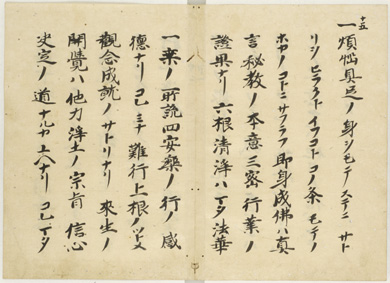 十五
一煩惱具足ノ身ヲモテステニサト
リヲヒラクトイフコトコノ条モテノ
ホカノコトニサフラフ即身成佛ハ真
言秘教ノ本意三密行業ノ
證果ナリ六根清浄ハマタ法華
一乗ノ所説四安樂ノ行ノ感
德ナリコレミナ難行上根ノツトメ
觀念成就ノサトリナリ來生ノ
開覺ハ他力浄土ノ宗旨信心
决定ノ道ナルカユヘナリコレマタ